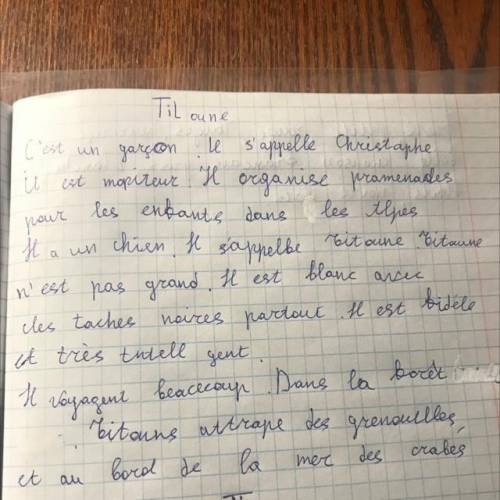 Titoune
C'est un garçon. Il s'appelle Christophe
il est moniteur. Il organise promenades
pour les enfants dans les Alpes
Il a un chien. Il s'appelbe Titoune. Titoune
n'est pas grand. Il est blanc avec
des taches noires partout. Il est fidèle
et très intell gent.
Il voyagent beacecoup. Dans la forêt
Titouns attrape des grenoulles,
et au bord de la mer des crabes,